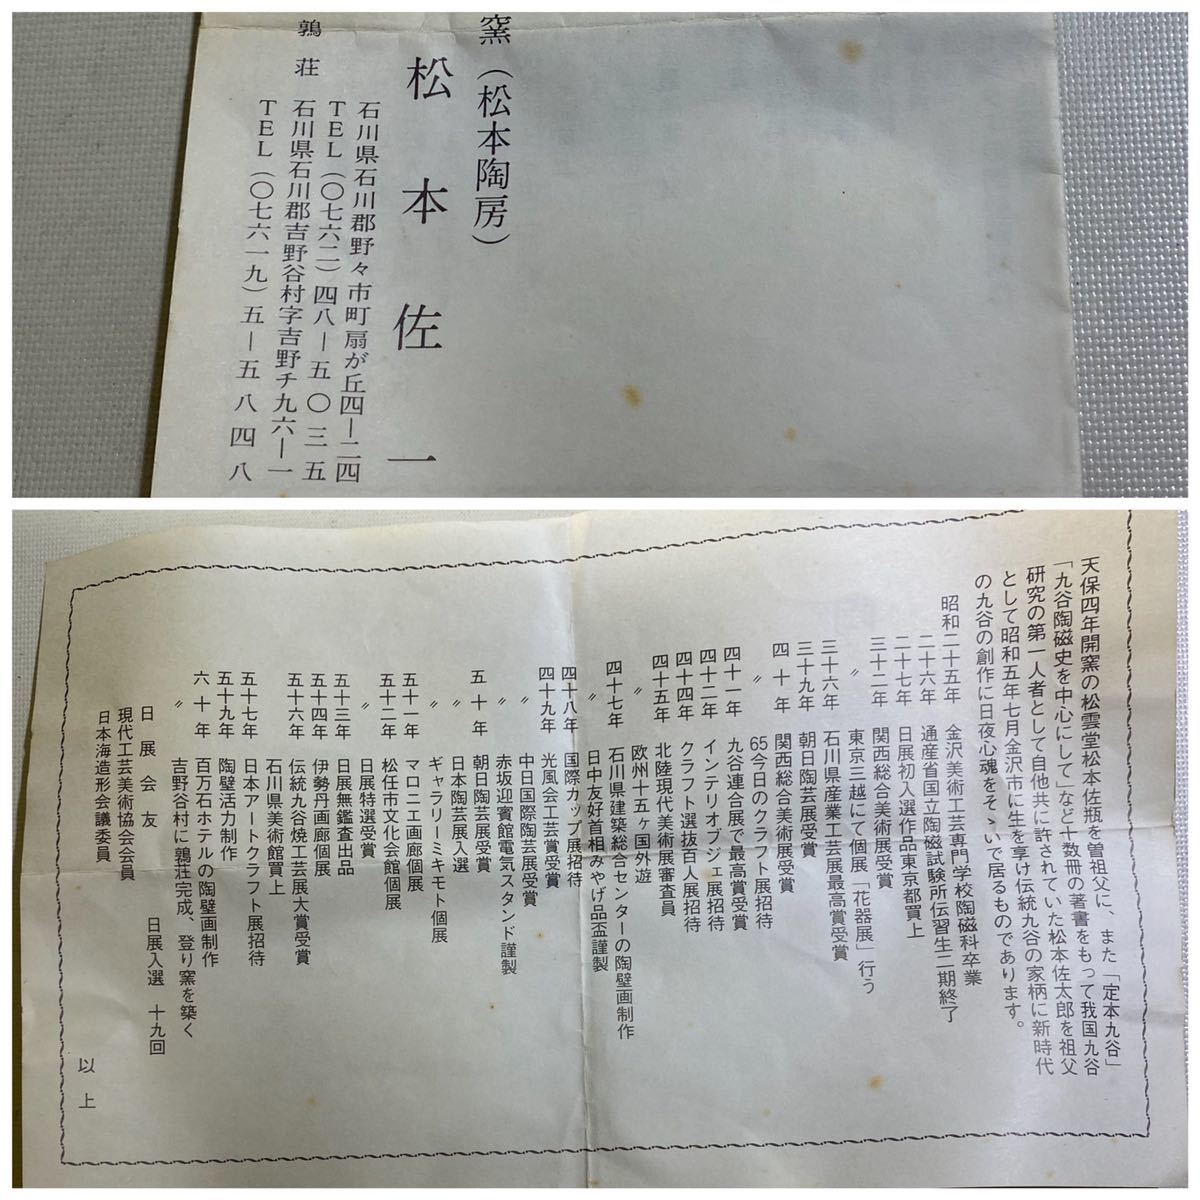 窯（松本陶房）
松本佐一
石川県石川郡野々市町扇が丘四―二四
TEL（〇七六二）四八―五〇三五
鶉荘
石川県石川郡吉野谷村字吉野チ九六―一
TEL（〇七六一九）五―五八四八
天保四年開窯の松雲堂松本佐瓶を曽祖父に、また「定本九谷」
「九谷陶磁史を中心にして」など十数冊の著書をもって我国九谷
研究の第一人者として自他共に許されていた松本佐太郎を祖父
として昭和五年七月金沢市に生を享け伝統九谷の家柄に新時代
の九谷の創作に日夜心魂をそゝいで居るものであります。
昭和二十五年 金沢美術工芸専門学校陶磁科卒業
二十六年 通産省国立陶磁試験所伝習生二期終了
二十七年 日展初入選作品東京都買上
三十二年 関西総合美術展受賞
〃 東京三越にて個展「花器展」行う
三十六年 石川県産業工芸展最高賞受賞
三十九年 朝日陶芸展受賞
四十年 関西総合美術展受賞
〃 65今日のクラフト展招待
四十一年 九谷連合展で最高賞受賞
四十二年 インテリオブジェ展招待
四十四年 クラフト選抜百人展招待
四十五年 北陸現代美術展審査員
〃 欧州十五ヶ国外遊
四十七年 石川県建築総合センターの陶壁画制作
〃 日中友好首相みやげ品盃謹製
四十八年 国際カップ展招待
四十九年 光風会工芸賞受賞
〃 中日国際陶芸展受賞
〃 赤坂迎賓館電気スタンド謹製
五十年 朝日陶芸展受賞
〃 日本陶芸展入選
〃 ギャラリーミキモト個展
五十一年 マロニエ画廊個展
五十二年 松任市文化会館個展
〃 日展特選受賞
五十三年 日展無鑑査出品
五十四年 伊勢丹画廊個展
五十六年 伝統九谷焼工芸展大賞受賞
〃 石川県美術館買上
五十七年 日本アートクラフト展招待
五十九年 陶壁活力制作
六十年 百万石ホテルの陶壁画制作
〃 吉野谷村に鶉荘完成、登り窯を築く
日展会友 日展入選 十九回
現代工芸美術協会会員
日本海造形会議委員
以上